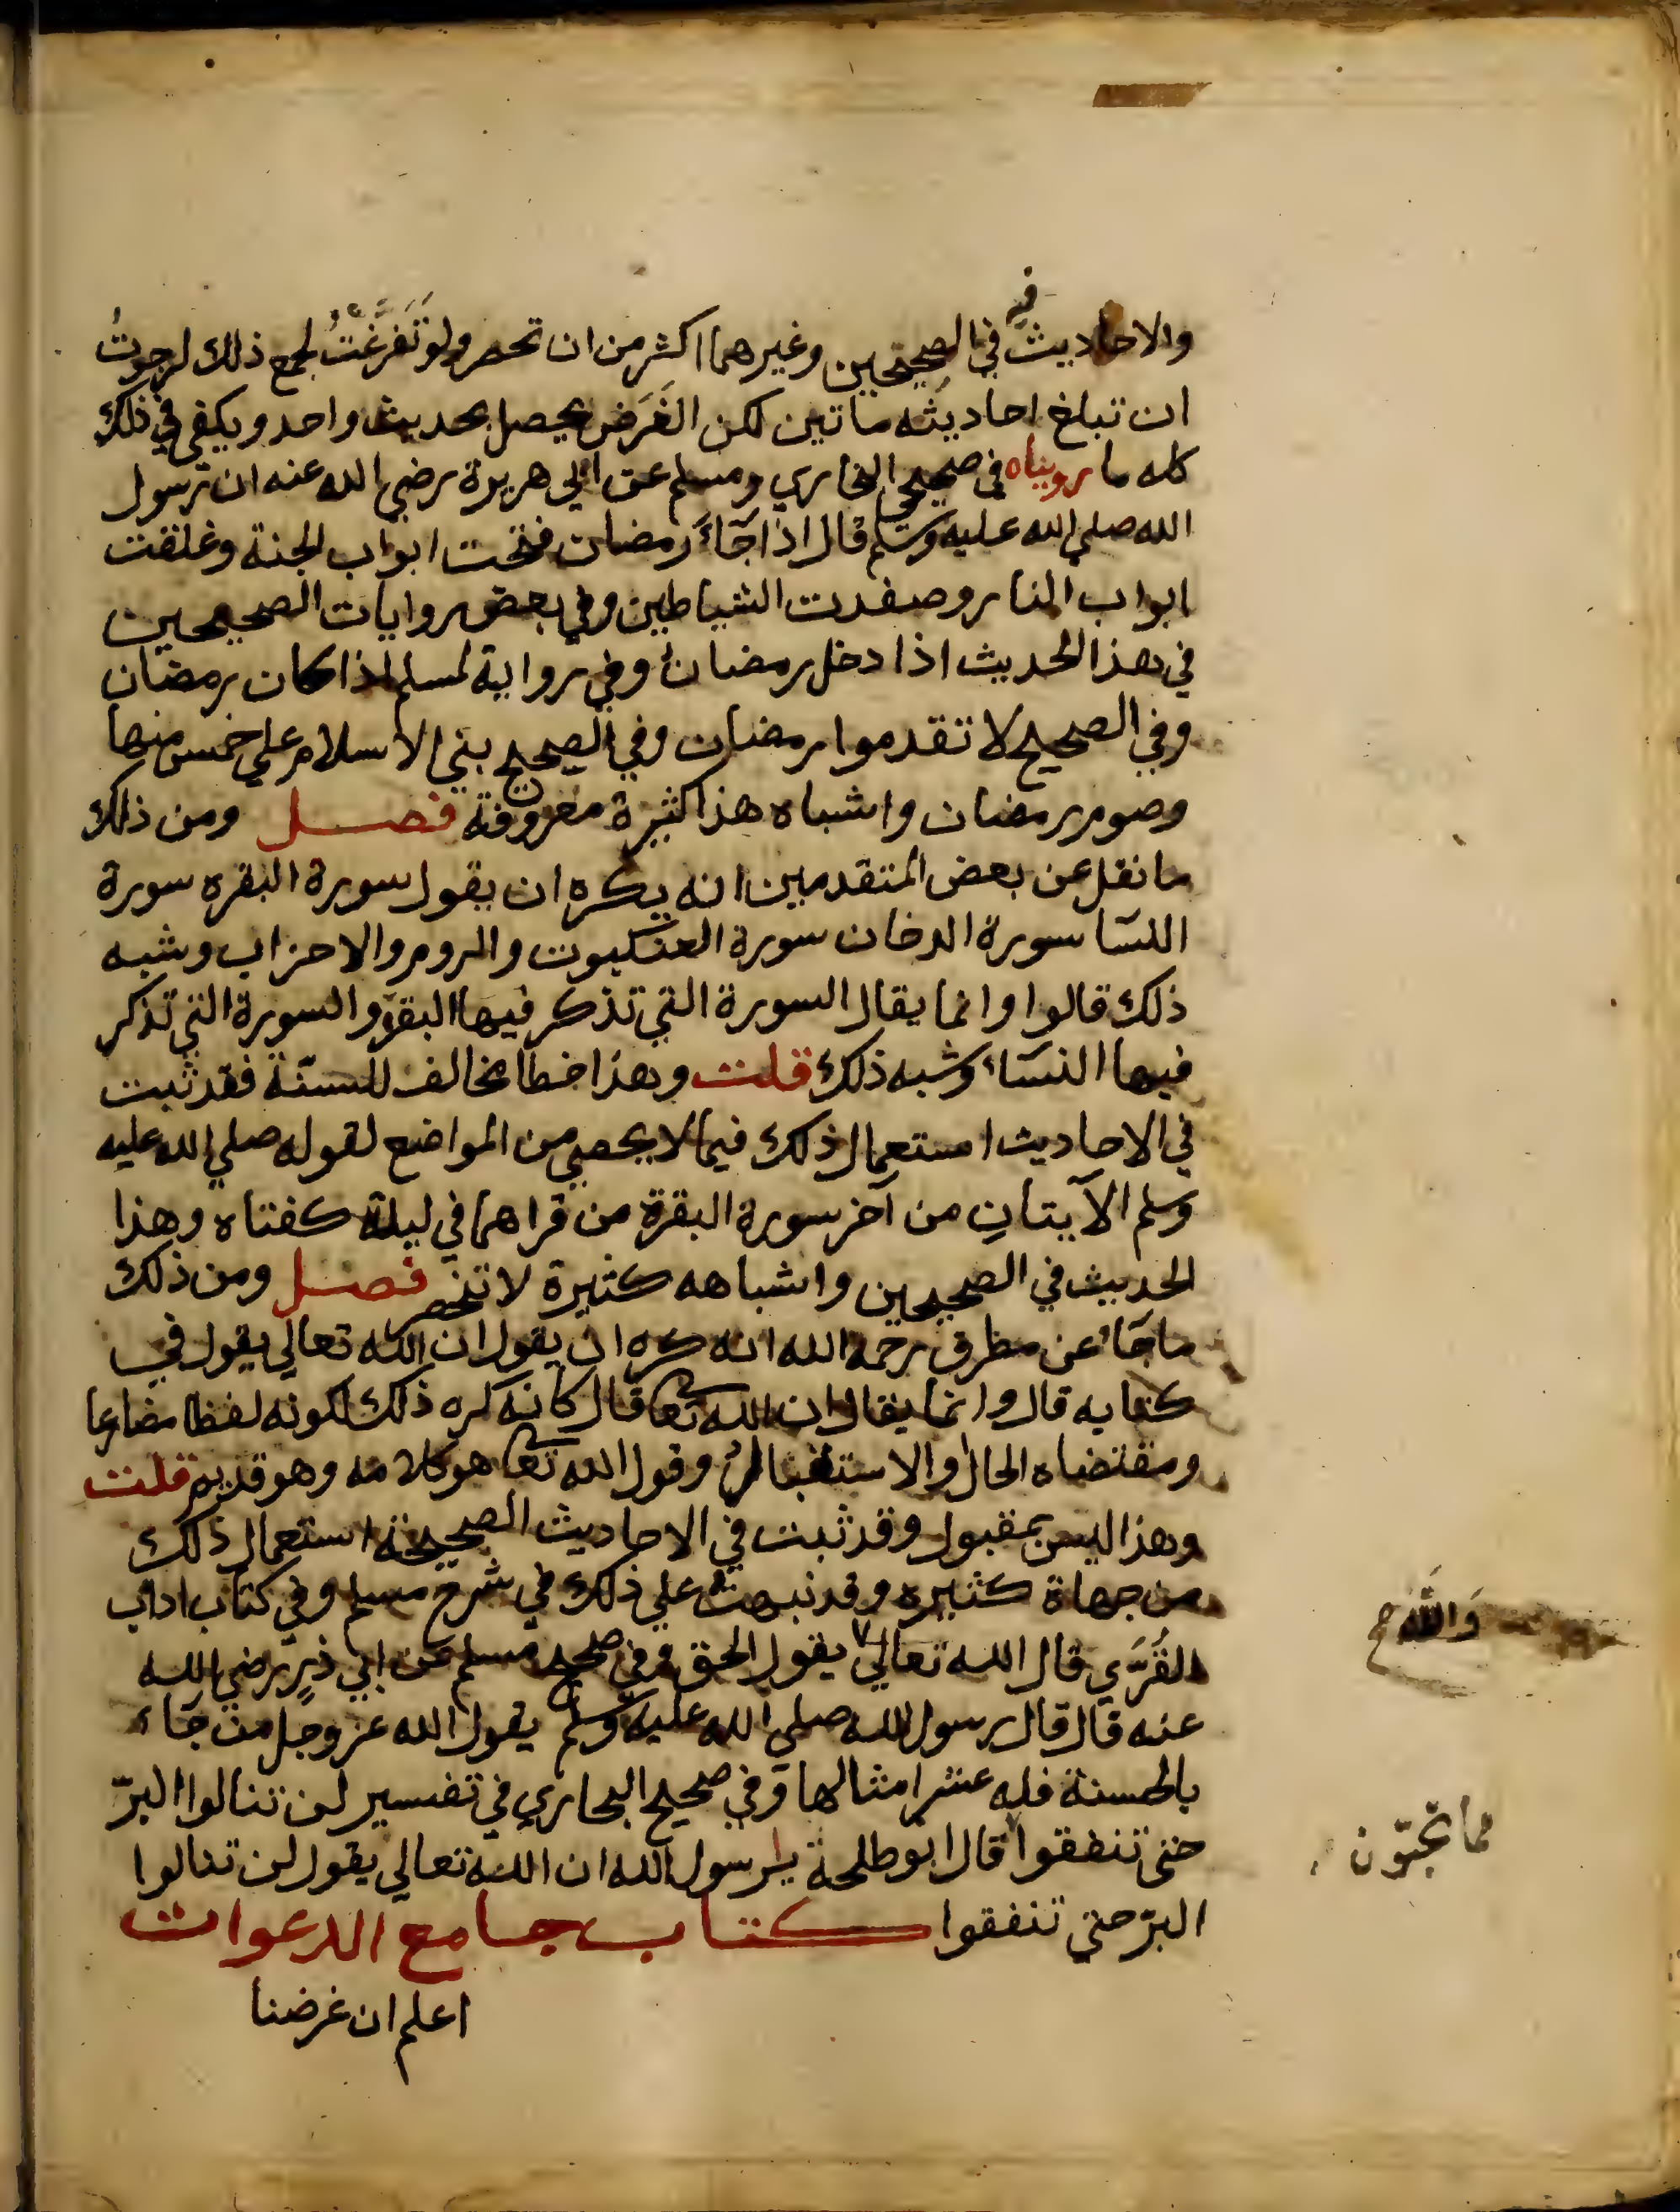 والاحاديث فيه في الصحيحين وغيرهما اكثر من ان تحصر ولو تَفَرَّغْتُ لجمع ذلك لرجوتُ
ان تبلغ احاديثه مائتين لكن الغَرَض يحصل بحديث واحد ويكفي في ذلك
كله ما رويناه في صحيحي البخاري ومسلم عن ابي هريرة رضي الله عنه ان رسول
الله صلي الله عليه وسلم قال اذا جآءَ رمضان فتحت ابواب الجنة وغلقت
ابواب النار وصفدت الشياطين وفي بعض روايات الصحيحين
في هذا الحديث اذا دخل رمضان وفي رواية لمسلم اذا كان رمضان
وفي الصحيح لا تقدموا رمضان وفي الصحيح بني الاسلام علي خمس منها
وصوم رمضان واشباه هذا كثيرة معروفة فصل ومن ذلك
ما نقل عن بعض المتقدمين انه يكره ان يقول سورة البقره سورة
النسآ سورة الدخان سورة العنكبوت والروم والاحزاب وشبه
ذلك قالوا وانما يقال السورة التي تذكر فيها البقرة والسورة التي تذكر
فيها النسآء وشبه ذلك قلت وهذا خطا مخالف للسنّة فقد ثبت
في الاحاديث استعمال ذلك فيما لا يحصي من المواضع لقوله صلي الله عليه
وسلم الآيتانِ من آخر سورة البقرة من قراهما في ليلة كفتاه وهذا
الحديث في الصحيحين واشباهه كثيرة لا تنحصر فصل ومن ذلك
ما جآء عن مطرف رحمه الله انه كره ان يقول ان الله تعالي يقول في
كتابه قال وانما يقال ان الله تعا قال كانه كره ذلك لكونه لفظا مضارعا
ومقتضاه الحال والاستقبال وقول الله تعا هو كلامه وهو قديم قلت
وهذا ليس بمقبول وقد ثبت في الاحاديث الصحيحة استعمال ذلك
من جهاة كثيره وقد نبهت علي ذلك في شرح مسلم وفي كتاب اداب
القُرَّي قال الله تعالي يقول الحق وفي صحيح مسلم عن ابي ذرٍ رضي الله
والله ح
عنه قال قال رسول الله صلي الله عليه وسلم يقول الله عز وجل من جآء
بالحسنة فله عشر امثالها وفي صحيح البخاري في تفسير لن تنالوا البرّ
حتي تنفقوا قال ابو طلحة يا رسول الله ان الله تعالي يقول لن تنالوا
مما تحبّون
البرّ حتي تنفقوا كتاب جامع الدعوات
اعلم ان غرضنا